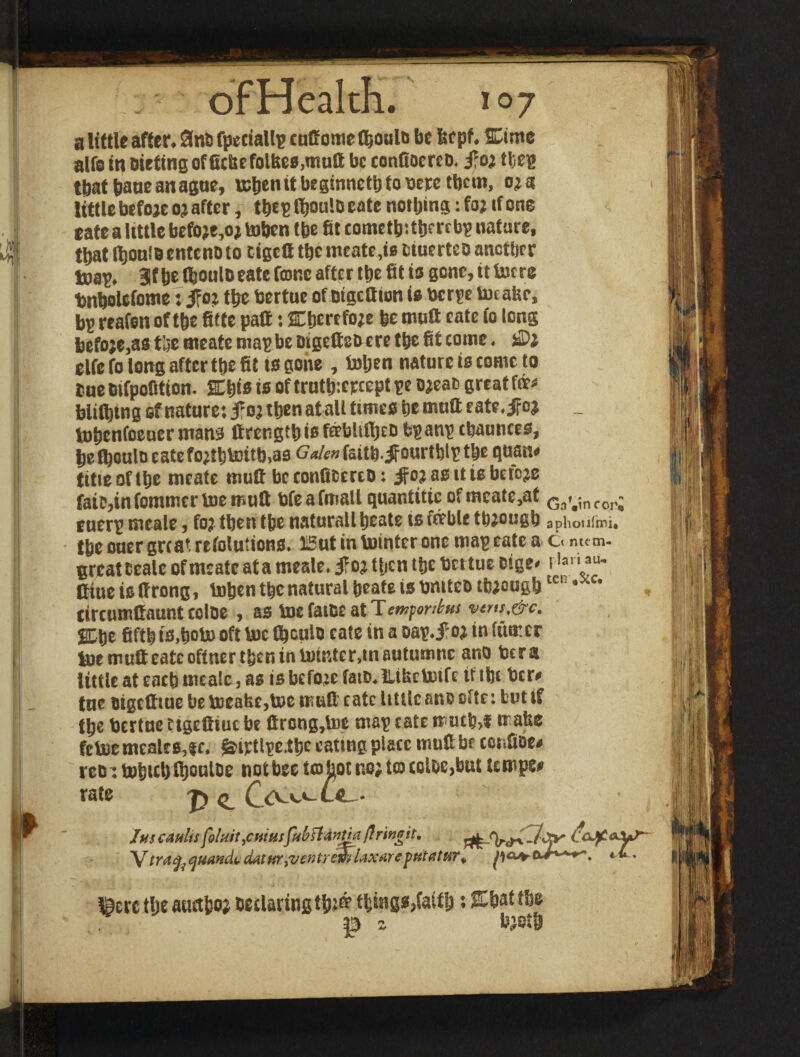 of Health. 107
a little after. And specially custome should be kept. Time
also in dieting of sicke folkes, must be considered. For they
that haue an ague, when it beginneth to vexe them, or a
little before or after, they should eate nothing: for if one
eate a little before, or when the fit cometh: thereby nature,
that should entend to digest the meate, is diuerted another
way. If he should eate soone after the fit is gone, it were
vnholesome: For the vertue of digestion is verye weake,
by reason of the fitte past: Therefore he must eate so long
before, as the meate may be digested ere the fit come. Or
else so long after the fit is gone, when nature is come to
due disposition. This is of truth: except ye dread great fee-
blishing of nature: For then at all times he must eate. For
whensoeuer mans strength is feeblished by any chaunces,
he should eate forthwith, as Galen saith. Fourthly the quan-
titie of the meate must be considered: For as it is before
said, in sommer we must vse a small quantitie of meate, at
euery meale, for then the naturall heate is feeble through
the ouer great resolutions. But in winter one may eate a
great deale of meate at a meale. For then the vertue dige-
stiue is strong, when the natural heate is vnited through
circumstaunt colde, as we saide at Temporibus veris, &c.
The fifth is, how oft we should eate in a day. For in sumer
we must eate oftner then in winter, in autumne and ver a
little at each meale, as is before said. Likewise if the ver-
tue digestiue be weake, we must eate little and ofte: but if
the vertue digestiue be strong, we may eate much, & make
fewe meales, &c. Sixtlye, the eating place must be conside-
red: which shoulde not bee too hot nor too colde, but tempe-
rate
Ga. in cor,
aphorismi.
Cõmem-
plari au-
ten, &c.
De Caule.
Ius caulis soluit, cuius substantia stringit.
Vtraq; quando datur, ventrem laxare putatur.
Here the aucthor declaring three things, saith: That the
P 2 broth